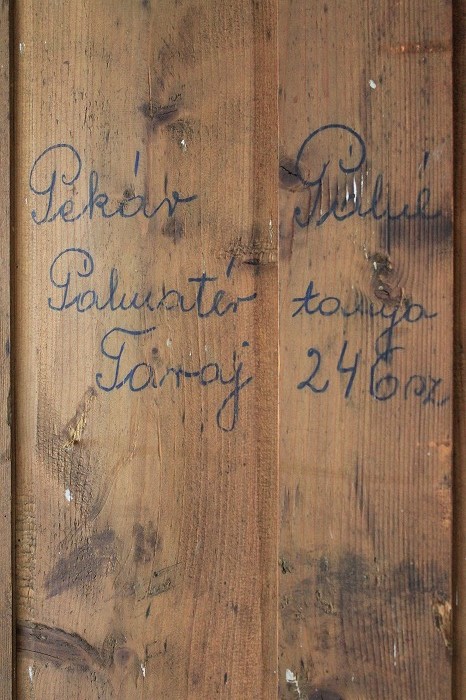 Pekár Pálné
Palmatér tanya
Taraj 246 sz.